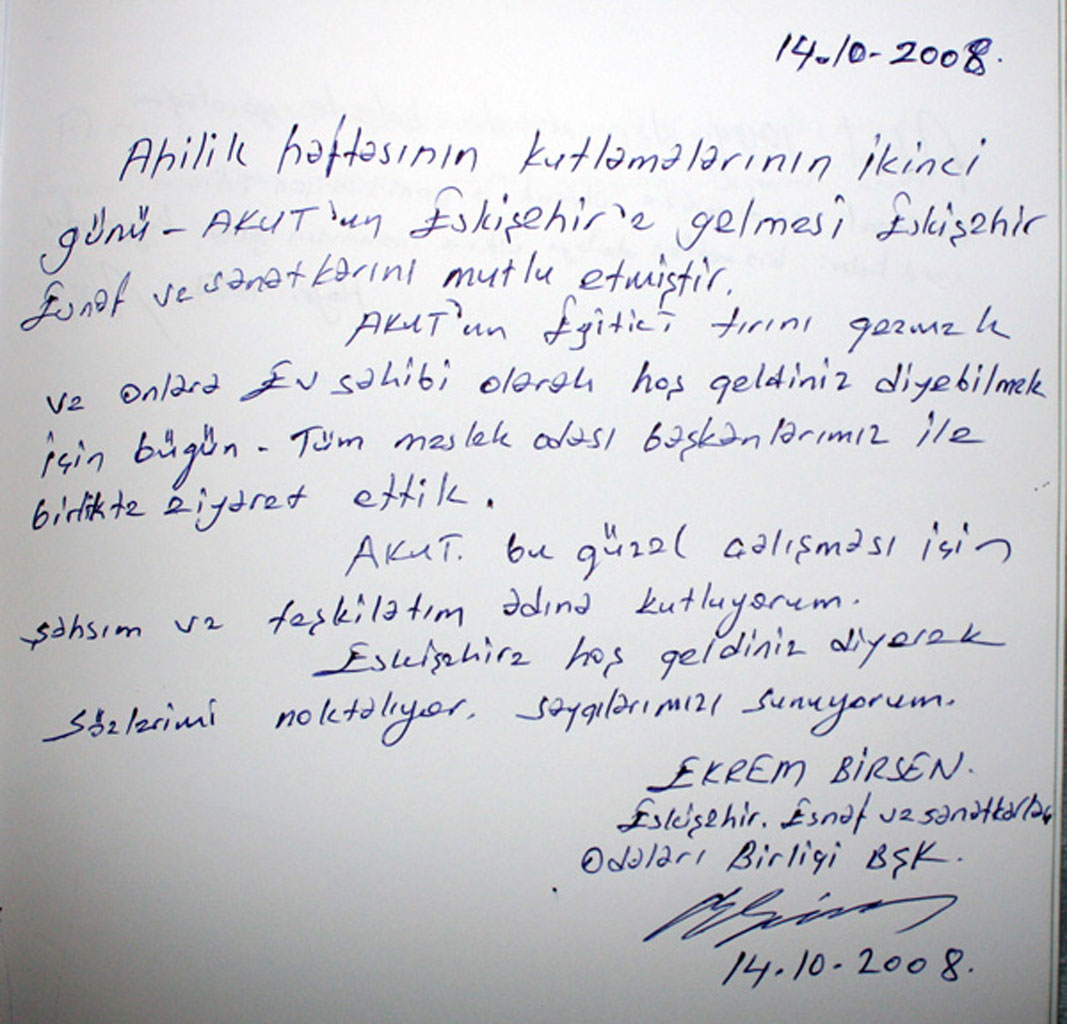 14.10-2008.
Ahilik haftasının kutlamalarının ikinci
günü - AKUT'un Eskişehir'e gelmesi Eskişehir
Esnaf ve sanatkarını mutlu etmiştir.
AKUT'un Eğitici tırını gezmek
ve onlara Ev sahibi olarak hoş geldiniz diyebilmek
için bügün - Tüm meslek odası başkanlarımız ile
birlikte ziyaret ettik.
AKUT. bu güzel çalışması için
şahsım ve teşkilatım adına kutluyorum.
Eskişehire hoş geldiniz diyerek
sözlerimi noktalıyor. saygılarımızı sunuyorum.
EKREM BİRSEN.
Eskişehir. Esnaf ve sanatkarlar
Odaları Birligi BŞK.
14.10-2008.